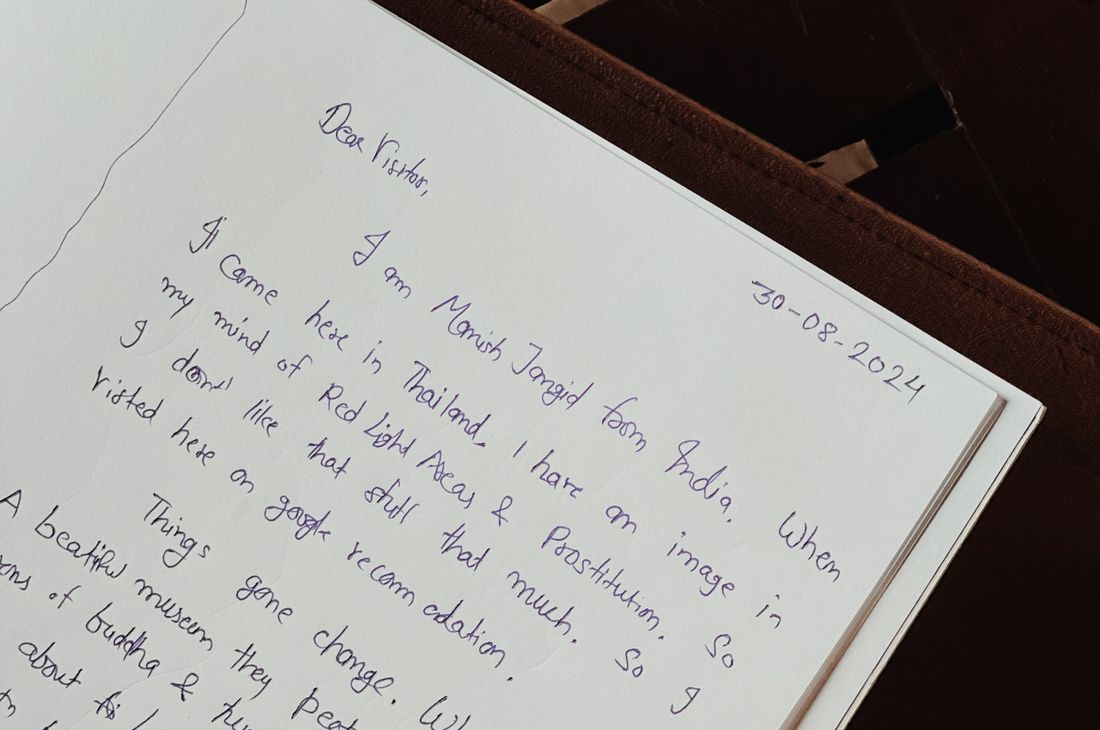 Dear Visitor,
30-08-2024
I am Manish Jangid from India. When
I came here in Thailand, I have an image in
my mind of Red Light Areas & Prostitution. So
I don't like that stuff that much. So I
visted here on google recomm adation.
Things gone change.
A beatiful museum they
of buddha &
about